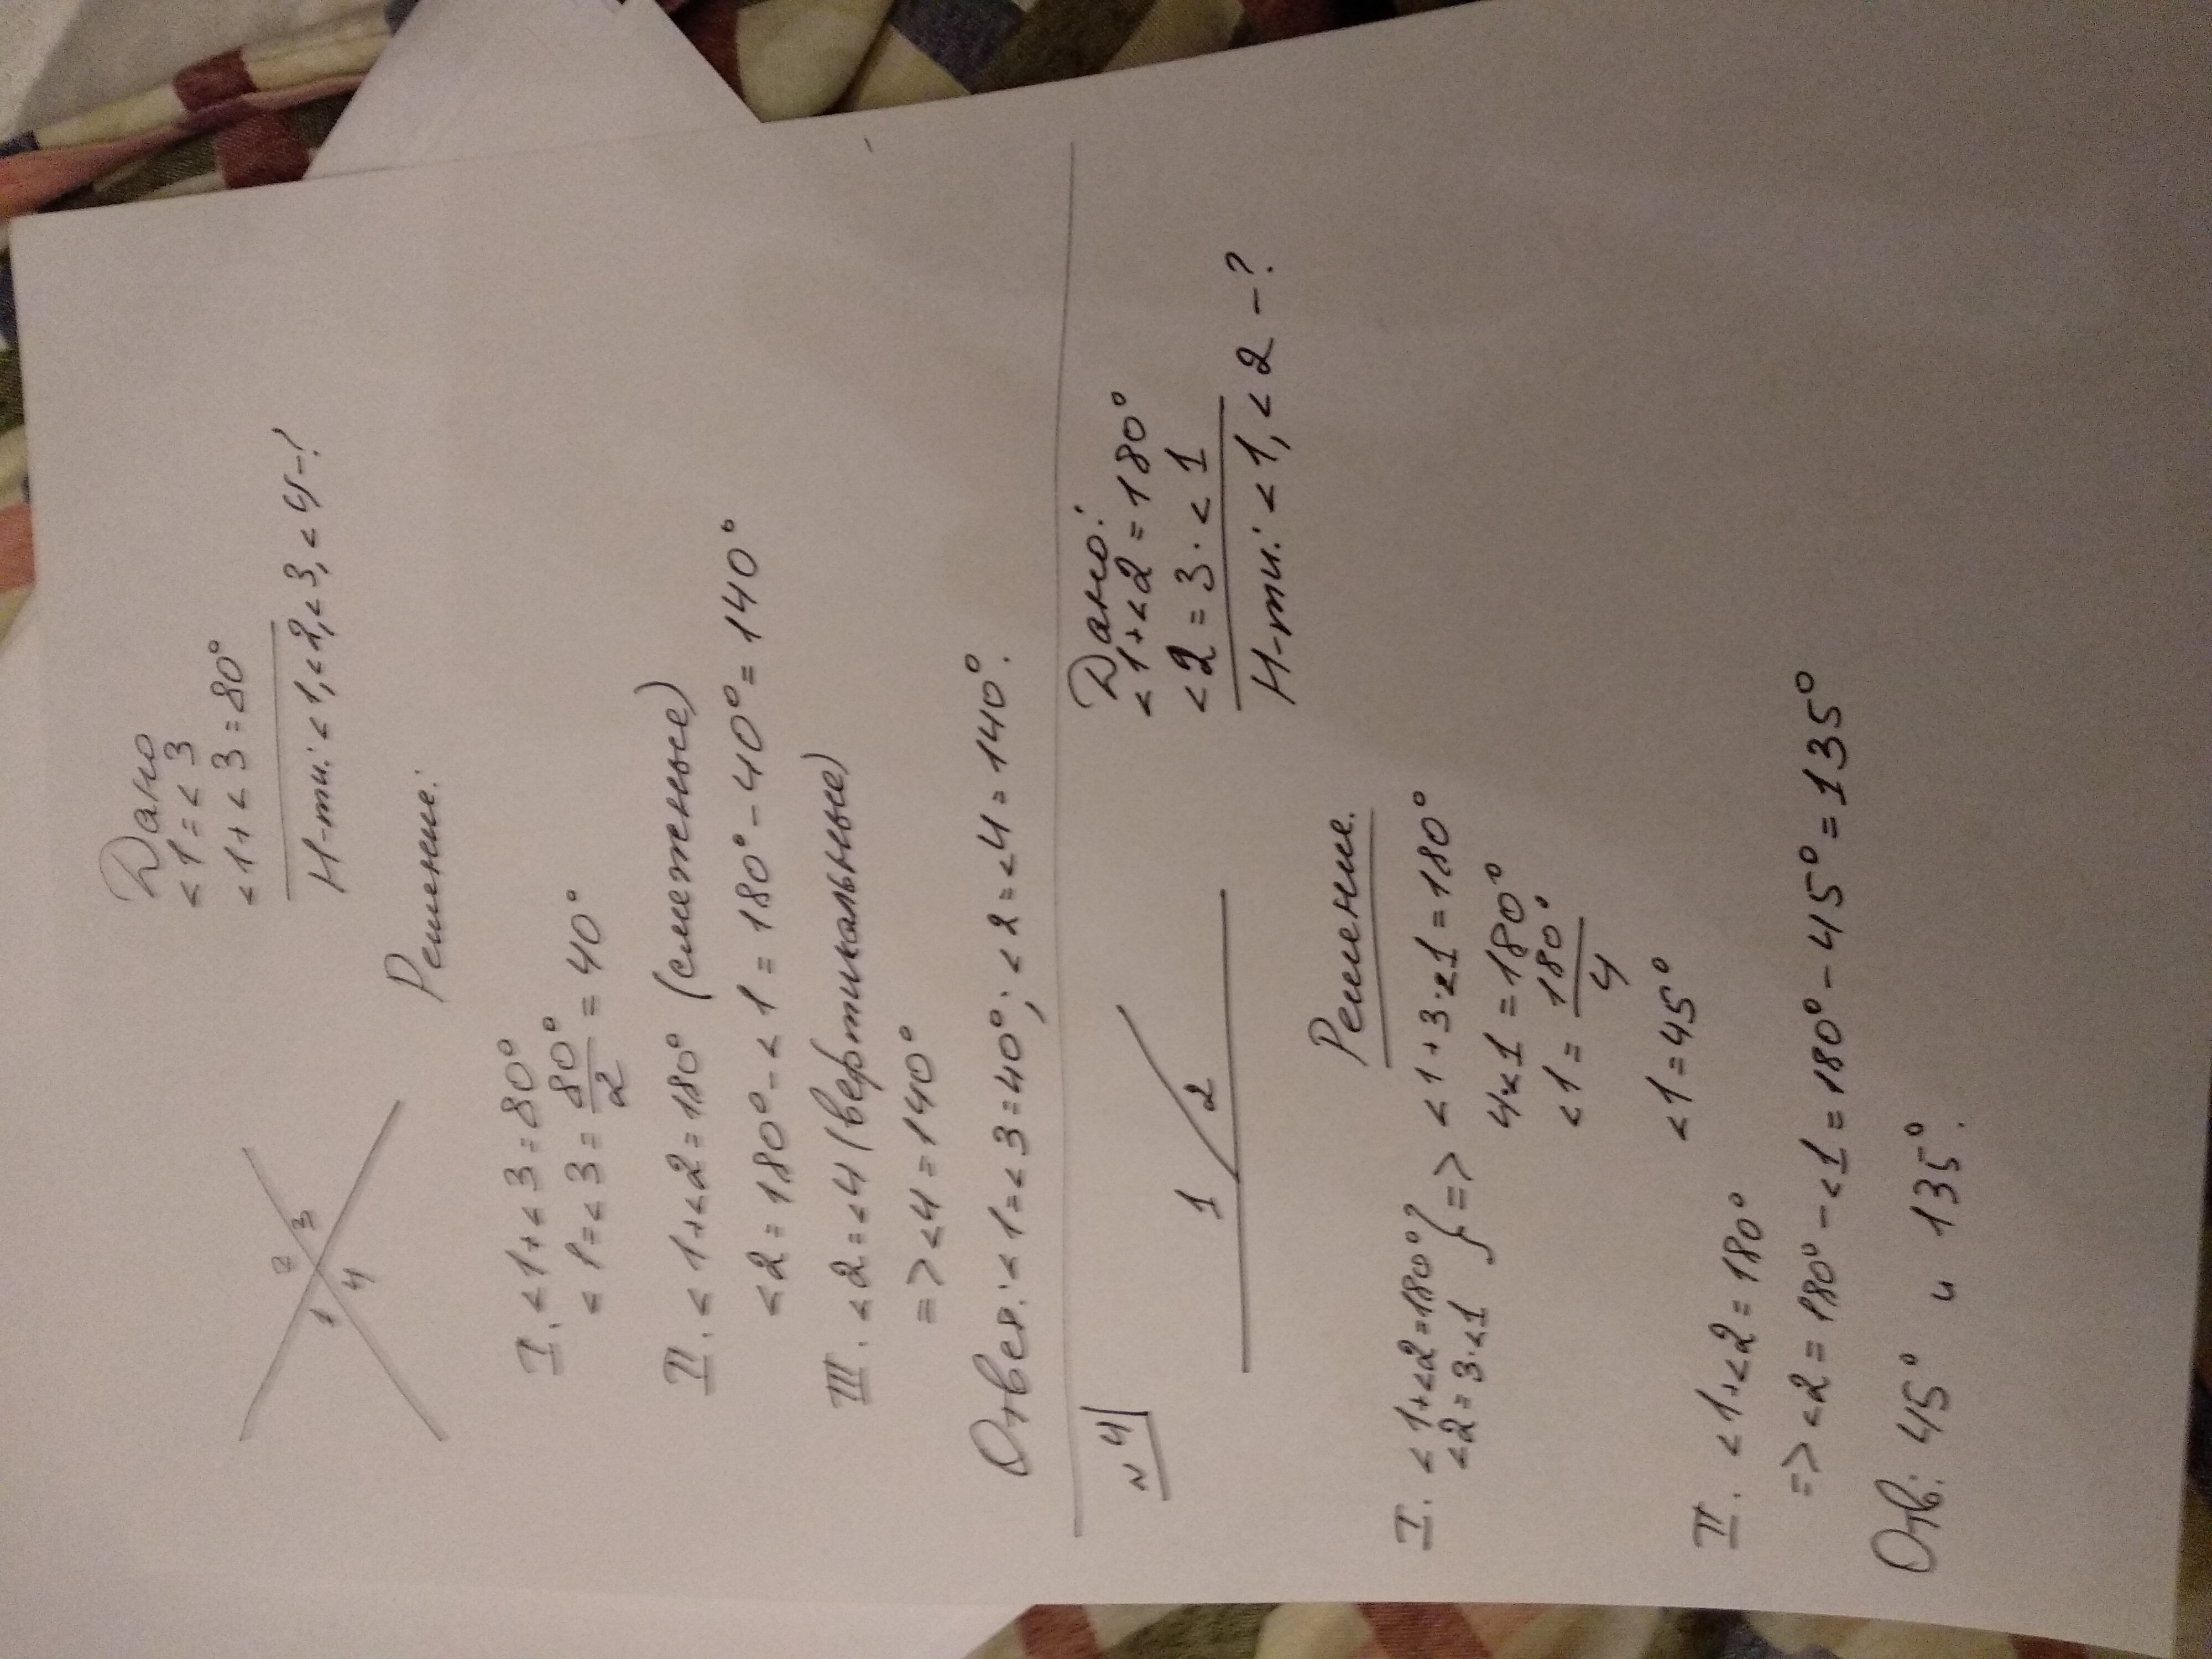 Дано
<1 = <3
<1 + <3 = 80°
Н-ти: <1, <2, <3, <4 - ?
1 2 3 4
Решение:
I. <1 + <3 = 80°
<1 = <3 = 80°/2 = 40°
II. <1 + <2 = 180° (смежные)
<2 = 180° - <1 = 180° - 40° = 140°
III. <2 = <4 (вертикальные)
=> <4 = 140°
Ответ: <1 = <3 = 40°; <2 = <4 = 140°.
№4
1 2
Дано:
<1 + <2 = 180°
<2 = 3 · <1
Н-ти: <1, <2 - ?
Решение.
I. <1 + <2 = 180°
<2 = 3·<1 } => <1 + 3·<1 = 180°
4<1 = 180°
<1 = 180°/4
<1 = 45°
II. <1 + <2 = 180°
=> <2 = 180° - <1 = 180° - 45° = 135°
Отв: 45° и 135°.